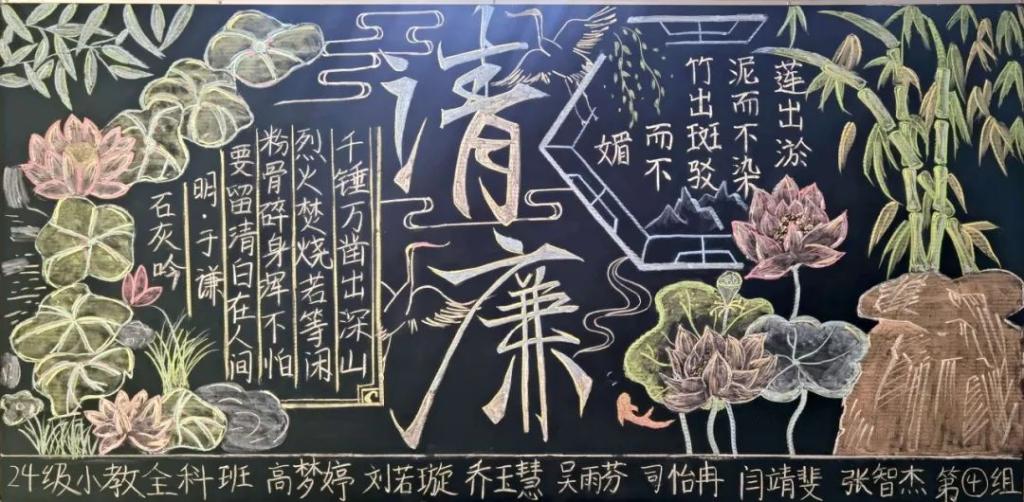 清廉
莲出淤
泥而不染
竹出斑驳
而不
媚
千锤万凿出深山
烈火焚烧若等闲
粉骨碎身浑不怕
要留清白在人间
明·于谦
石灰吟
24级小教全科班 高梦婷 刘若璇 乔玉慧 吴雨芬 司怡冉 闫靖斐 张智杰 第④组